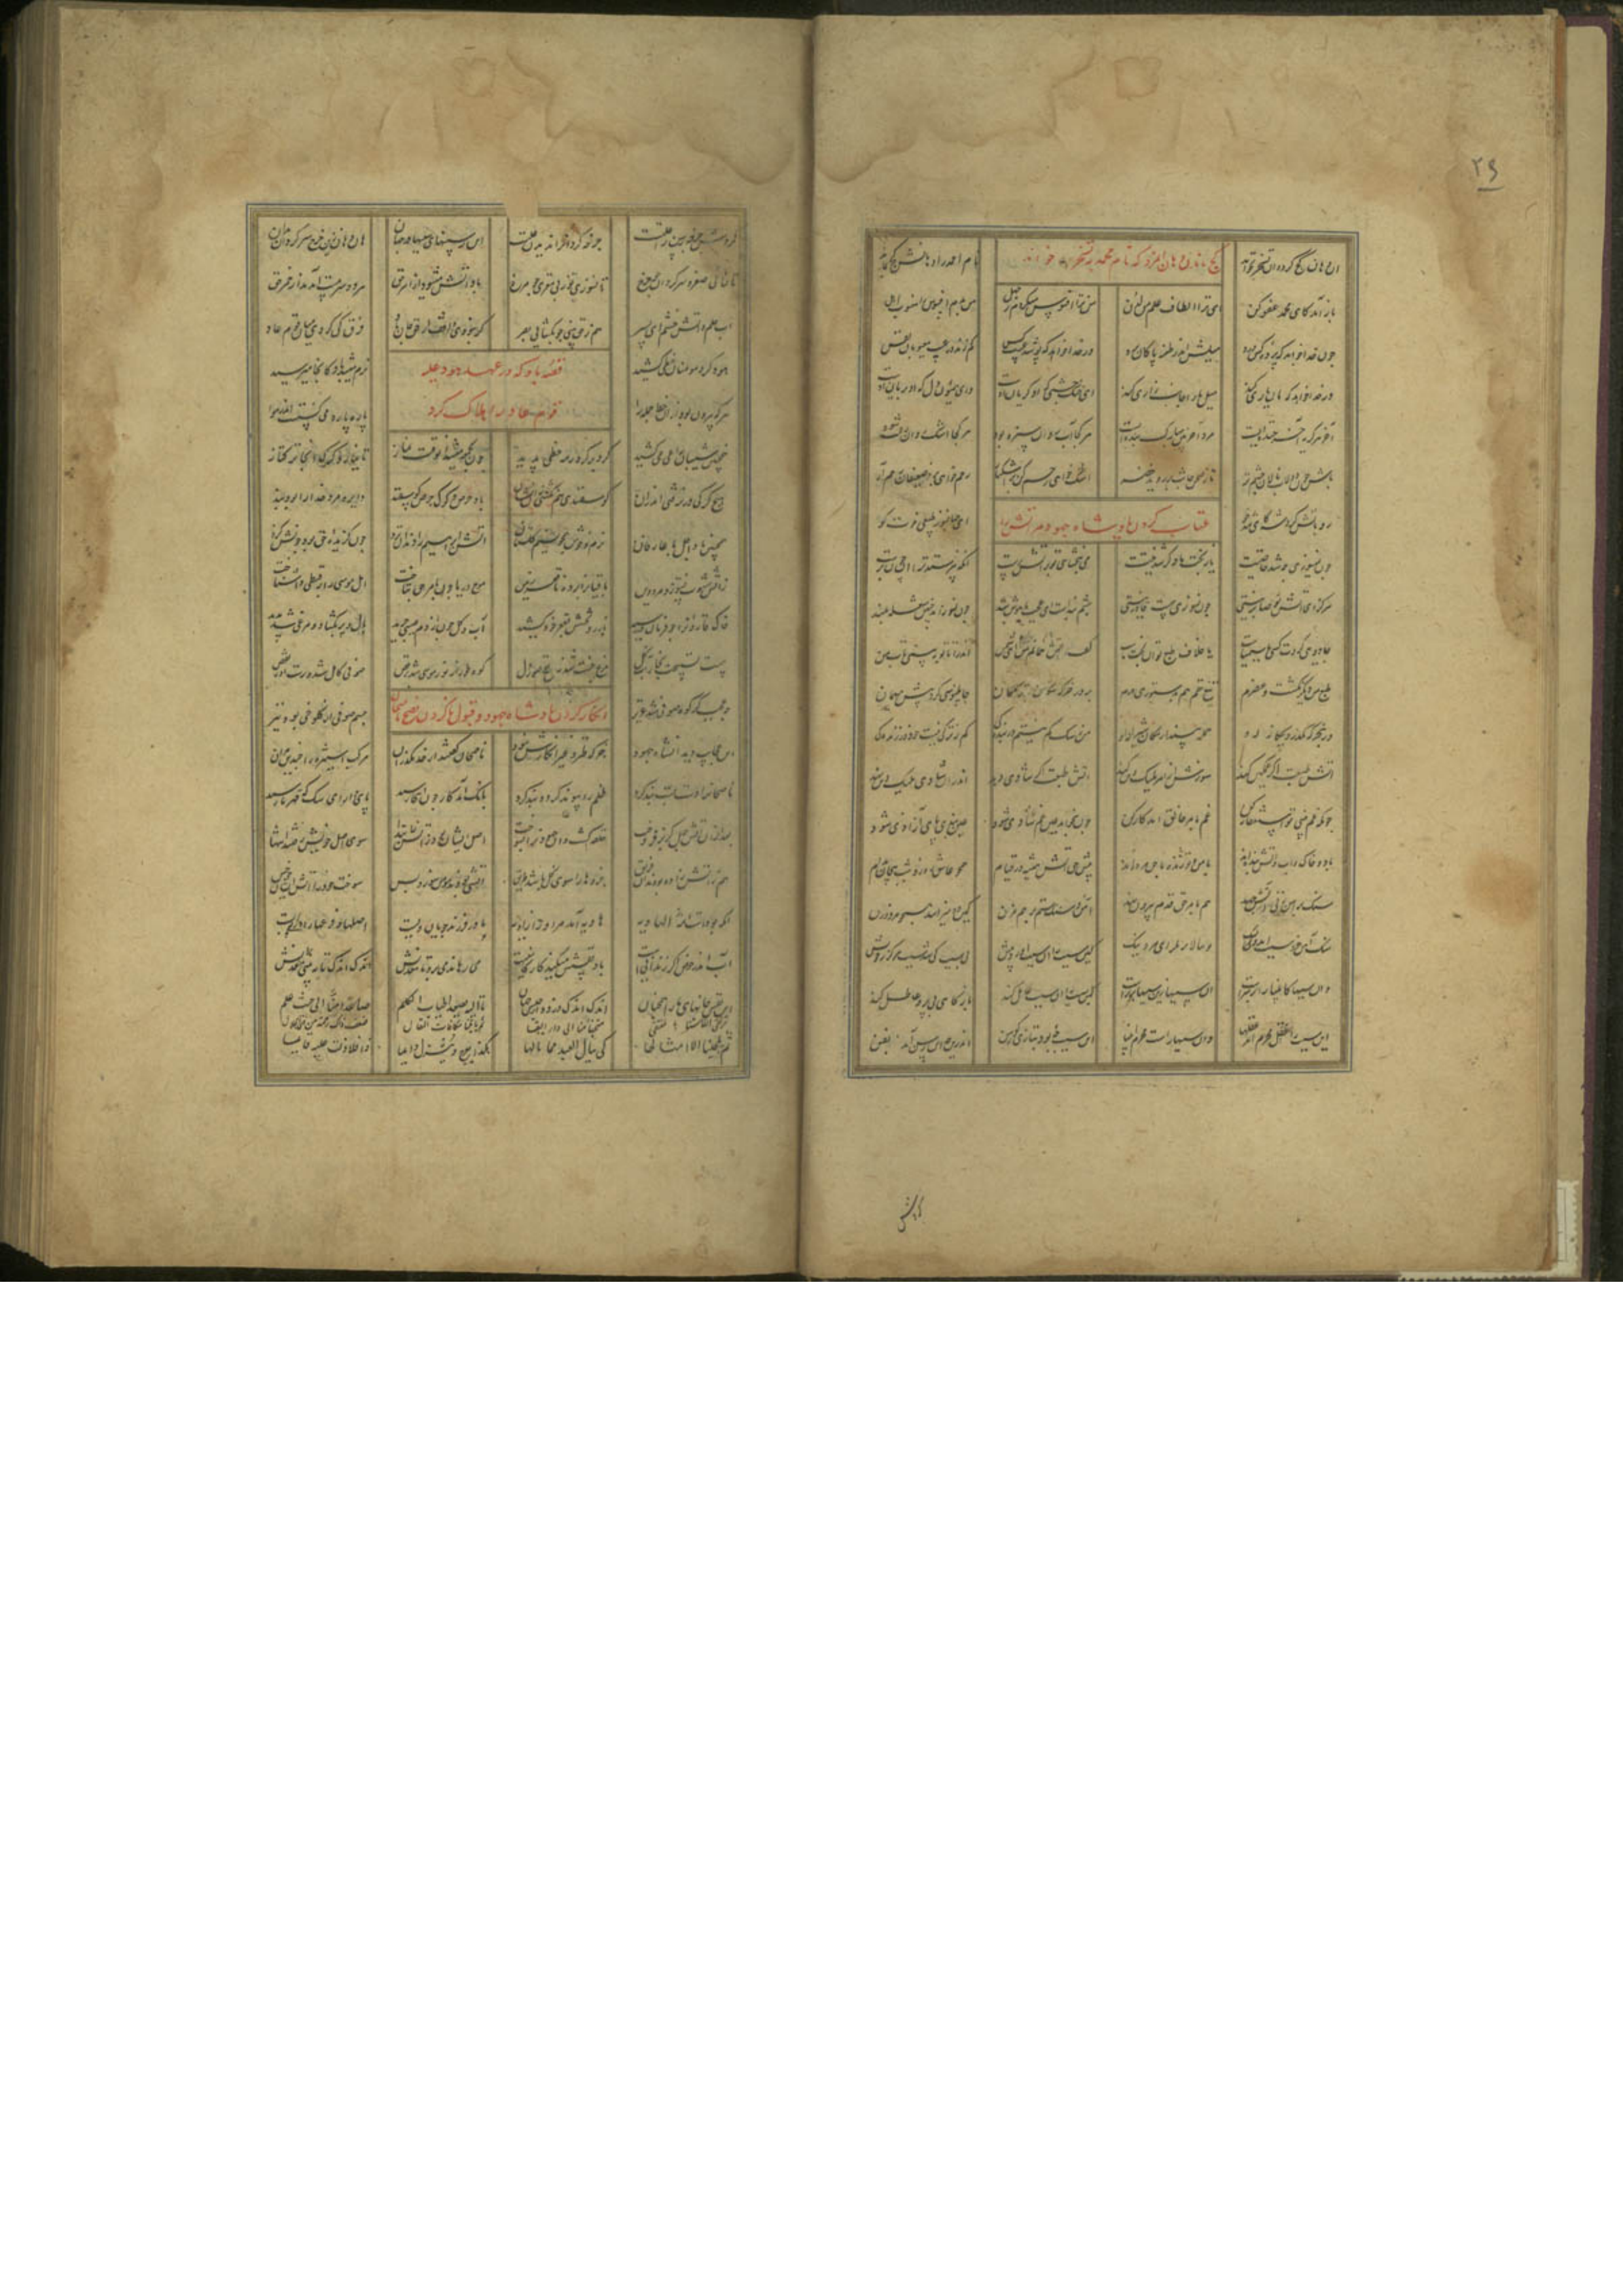 ۲۹
آن دهان کژ کرد و از تسخر بخواند نام احمد را دهانش کژ بماند
کژ ماندن دهان آن مرد که نام محمد به تسخر خواند
باز آمد کای محمد عفو کن ای ترا الطاف علم من لدن من ترا افسوس میکردم ز جهل من بدم افسوس را منسوب و اهل
چون خدا خواهد که پرده کس درد میلش اندر طعنه پاکان برد ور خدا خواهد که پوشد عیب کس کم زند در عیب معیوبان نفس
ور خدا خواهد که مان یاری کند میل ما را جانب زاری کند ای خنک چشمی که او گریان اوست وی همایون دل که او بریان اوست
آخر هر گریه آخر خنده ایست مرد آخر بین مبارک بنده ایست هر کجا آب روان سبزه بود هر کجا اشک روان رحمت شود
باش چون دولاب نالان چشم تر تا ز صحن جانت بر روید خضر اشک خواهی رحم کن بر اشکبار رحم خواهی بر ضعیفان رحم آر
عتاب کردن پادشاه جهود مر آتش را
رو بآتش کرد شه کای تندخو آن جهانسوز طبیعی خوت کو
چون نمیسوزی چه شد خاصیتت یا ز بخت ما دگر شد نیتت می نبخشایی تو بر آتش پرست آنکه نپرستد ترا او چون برست
هرگز ای آتش تو صابر نیستی چون نسوزی چیست قادر نیستی چشم بندست ای عجب یا هوش بند چون نسوزاند چنین شعله بلند
جادوی کردت کسی یا سیمیاست یا خلاف طبع تو از بخت ماست گفت آتش من همانم آتشم اندرا تا تو ببینی تاب من
طبع من دیگر نگشت و عنصرم تیغ حقم هم بدستوری برم بر در خرگه سگان ترکمان چاپلوسی کرده پیش میهمان
ور بخرگه بگذرد بیگانه رو حمله بیند از سگان شیرانه او من ز سگ کم نیستم در بندگی کم ز ترکی نیست حق در زندگی
آتش طبعت اگر غمگین کند سوزش از امر ملیک دین کند آتش طبعت اگر شادی دهد اندرو شادی ملیک دین نهد
چونکه غم بینی تو استغفار کن غم بامر خالق آمد کار کن چون بخواهد عین غم شادی شود عین بند پای آزادی شود
باد و خاک و آب و آتش بنده اند پیش حق آتش همیشه در قیام همچو عاشق روز و شب پیچان مدام
سنگ بر آهن زنی هم بامر حق قدم بیرون نهد آهن و سنگ ستم بر هم مزن کین دو میزایند همچو مرد و زن
سنگ و آهن خود سبب آمد ولیک تو ببالاتر نگر ای مرد نیک کین سبب را آن سبب آورد پیش بی سبب کی شد سبب هرگز ز خویش
وان سببها کانبیا را رهبرست آن سببها زین سببها برترست این سبب را آن سبب عامل کند باز گاهی بی بر و عاطل کند
این سبب را محرم آمد عقلها وان سببها راست محرم انبیا این سبب چه بود بتازی گو رسن اندرین چه این رسن آمد بفن
گردش
گردش چرخه رسن را علتست چرخه گردان را ندیدن زلتست این رسنهای سببها در جهان هان و هان زین چرخ سرگردان مدان
تا نمانی صفر و سرگردان چو چرخ تا نسوزی تو ز بی مغزی چو مرخ باد آتش میشود از امر حق هر دو سرمست آمدند از خمر حق
آب حلم و آتش خشم ای پسر هم ز حق بینی چو بگشایی بصر گر نبودی واقف از حق جان باد فرق کی کردی میان قوم عاد
قصه باد که در عهد هود علیه
قوم عاد را هلاک کرد
هود گرد مومنان خطی کشید نرم میشد باد کانجا میرسید
هر که بیرون بود زان خط جمله را پاره پاره میگسست اندر هوا
همچنین شیبان راعی میکشید گرد بر گرد رمه خطی پدید چون بجمعه میشد او وقت نماز تا نیارد گرگ آنجا ترکتاز
هیچ گرگی در نرفتی اندران گوسفندی هم نگشتی زان نشان باد حرص گرگ و حرص گوسفند دایره مرد خدا را بود بند
همچنین باد اجل با عارفان نرم و خوش همچون نسیم گلستان آتش ابراهیم را دندان نزد چون گزیده حق بود چونش گزد
ز آتش شهوت نسوزد مرد دین باقیانرا برده تا قعر زمین موج دریا چون بامر حق بتاخت اهل موسی را ز قبطی وا شناخت
خاک قارون را چو فرمان در رسید با زر و تختش بقعر خود کشید آب و گل چون از دم عیسی چرید بال و پر بگشاد و مرغی شد پرید
هست تسبیحت بخار آب و گل مرغ جنت شد ز نفخ صدق دل کوه طور از نور موسی شد برقص صوفی کامل شد و رست او ز نقص
چه عجب گر کوه صوفی شد عزیز جسم موسی از کلوخی بود نیز
انکار کردن پادشاه جهود و قبول ناکردن نصیحت ناصحان
این عجایب دید آن شاه جهود جز که طنز و جز که انکارش نبود ناصحان گفتند از حد مگذران مرکب استیزه را چندین مران
ناصحانرا دست بست و بند کرد ظلم را پیوند در پیوند کرد بانگ آمد کار چون اینجا رسید پای دار ای سگ که قهر ما رسید
بعد ازان آتش چهل گز بر فروخت حلقه گشت و آن جهودانرا بسوخت اصل ایشان بود ز آتش ابتدا سوی اصل خویش رفتند انتها
هم ز آتش زاده بودند آن فریق جزوها را سوی کل باشد طریق آتشی بودند مومن سوز و بس سوخت خود را آتش ایشان چو خس
آنکه بودست امه الهاویه هاویه آمد مر او را زاویه مادر فرزند جویان ویست اصلها مر فرعها را در پیست
آب اندر حوض اگر زندانیست باد نشفش میکند کارکانیست میرهاند میبرد تا معدنش اندک اندک تا نبینی بردنش
وین نفس جانهای ما را همچنان اندک اندک دزدد از حبس جهان تا الیه یصعد اطیاب الکلم صاعدا منا الی حیث علم
ترتقی انفاسنا بالمنتقی متحفا منا الی دار البقا ثم تاتینا مکافات المقال ضعف ذاک رحمة من ذی الجلال
ثم یلجینا الی امثالها کی ینال العبد مما نالها هکذی تعرج و تنزل دایما ذا فلا زلت علیه قایما